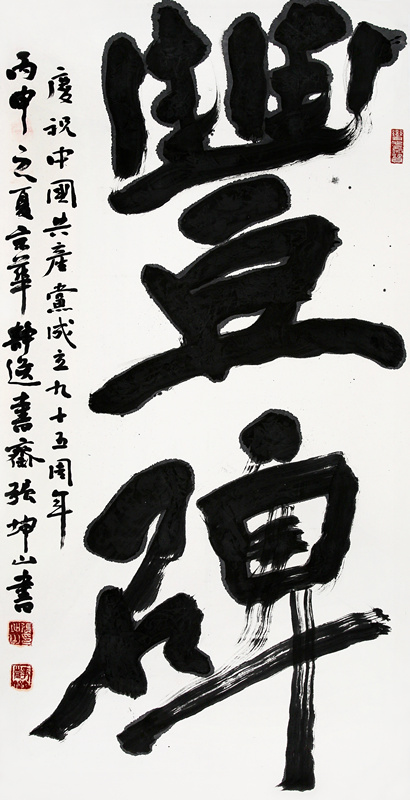 豐碑
慶祝中國共産黨成立九十五周年
丙申之夏京華靜逸書齋張坤山書